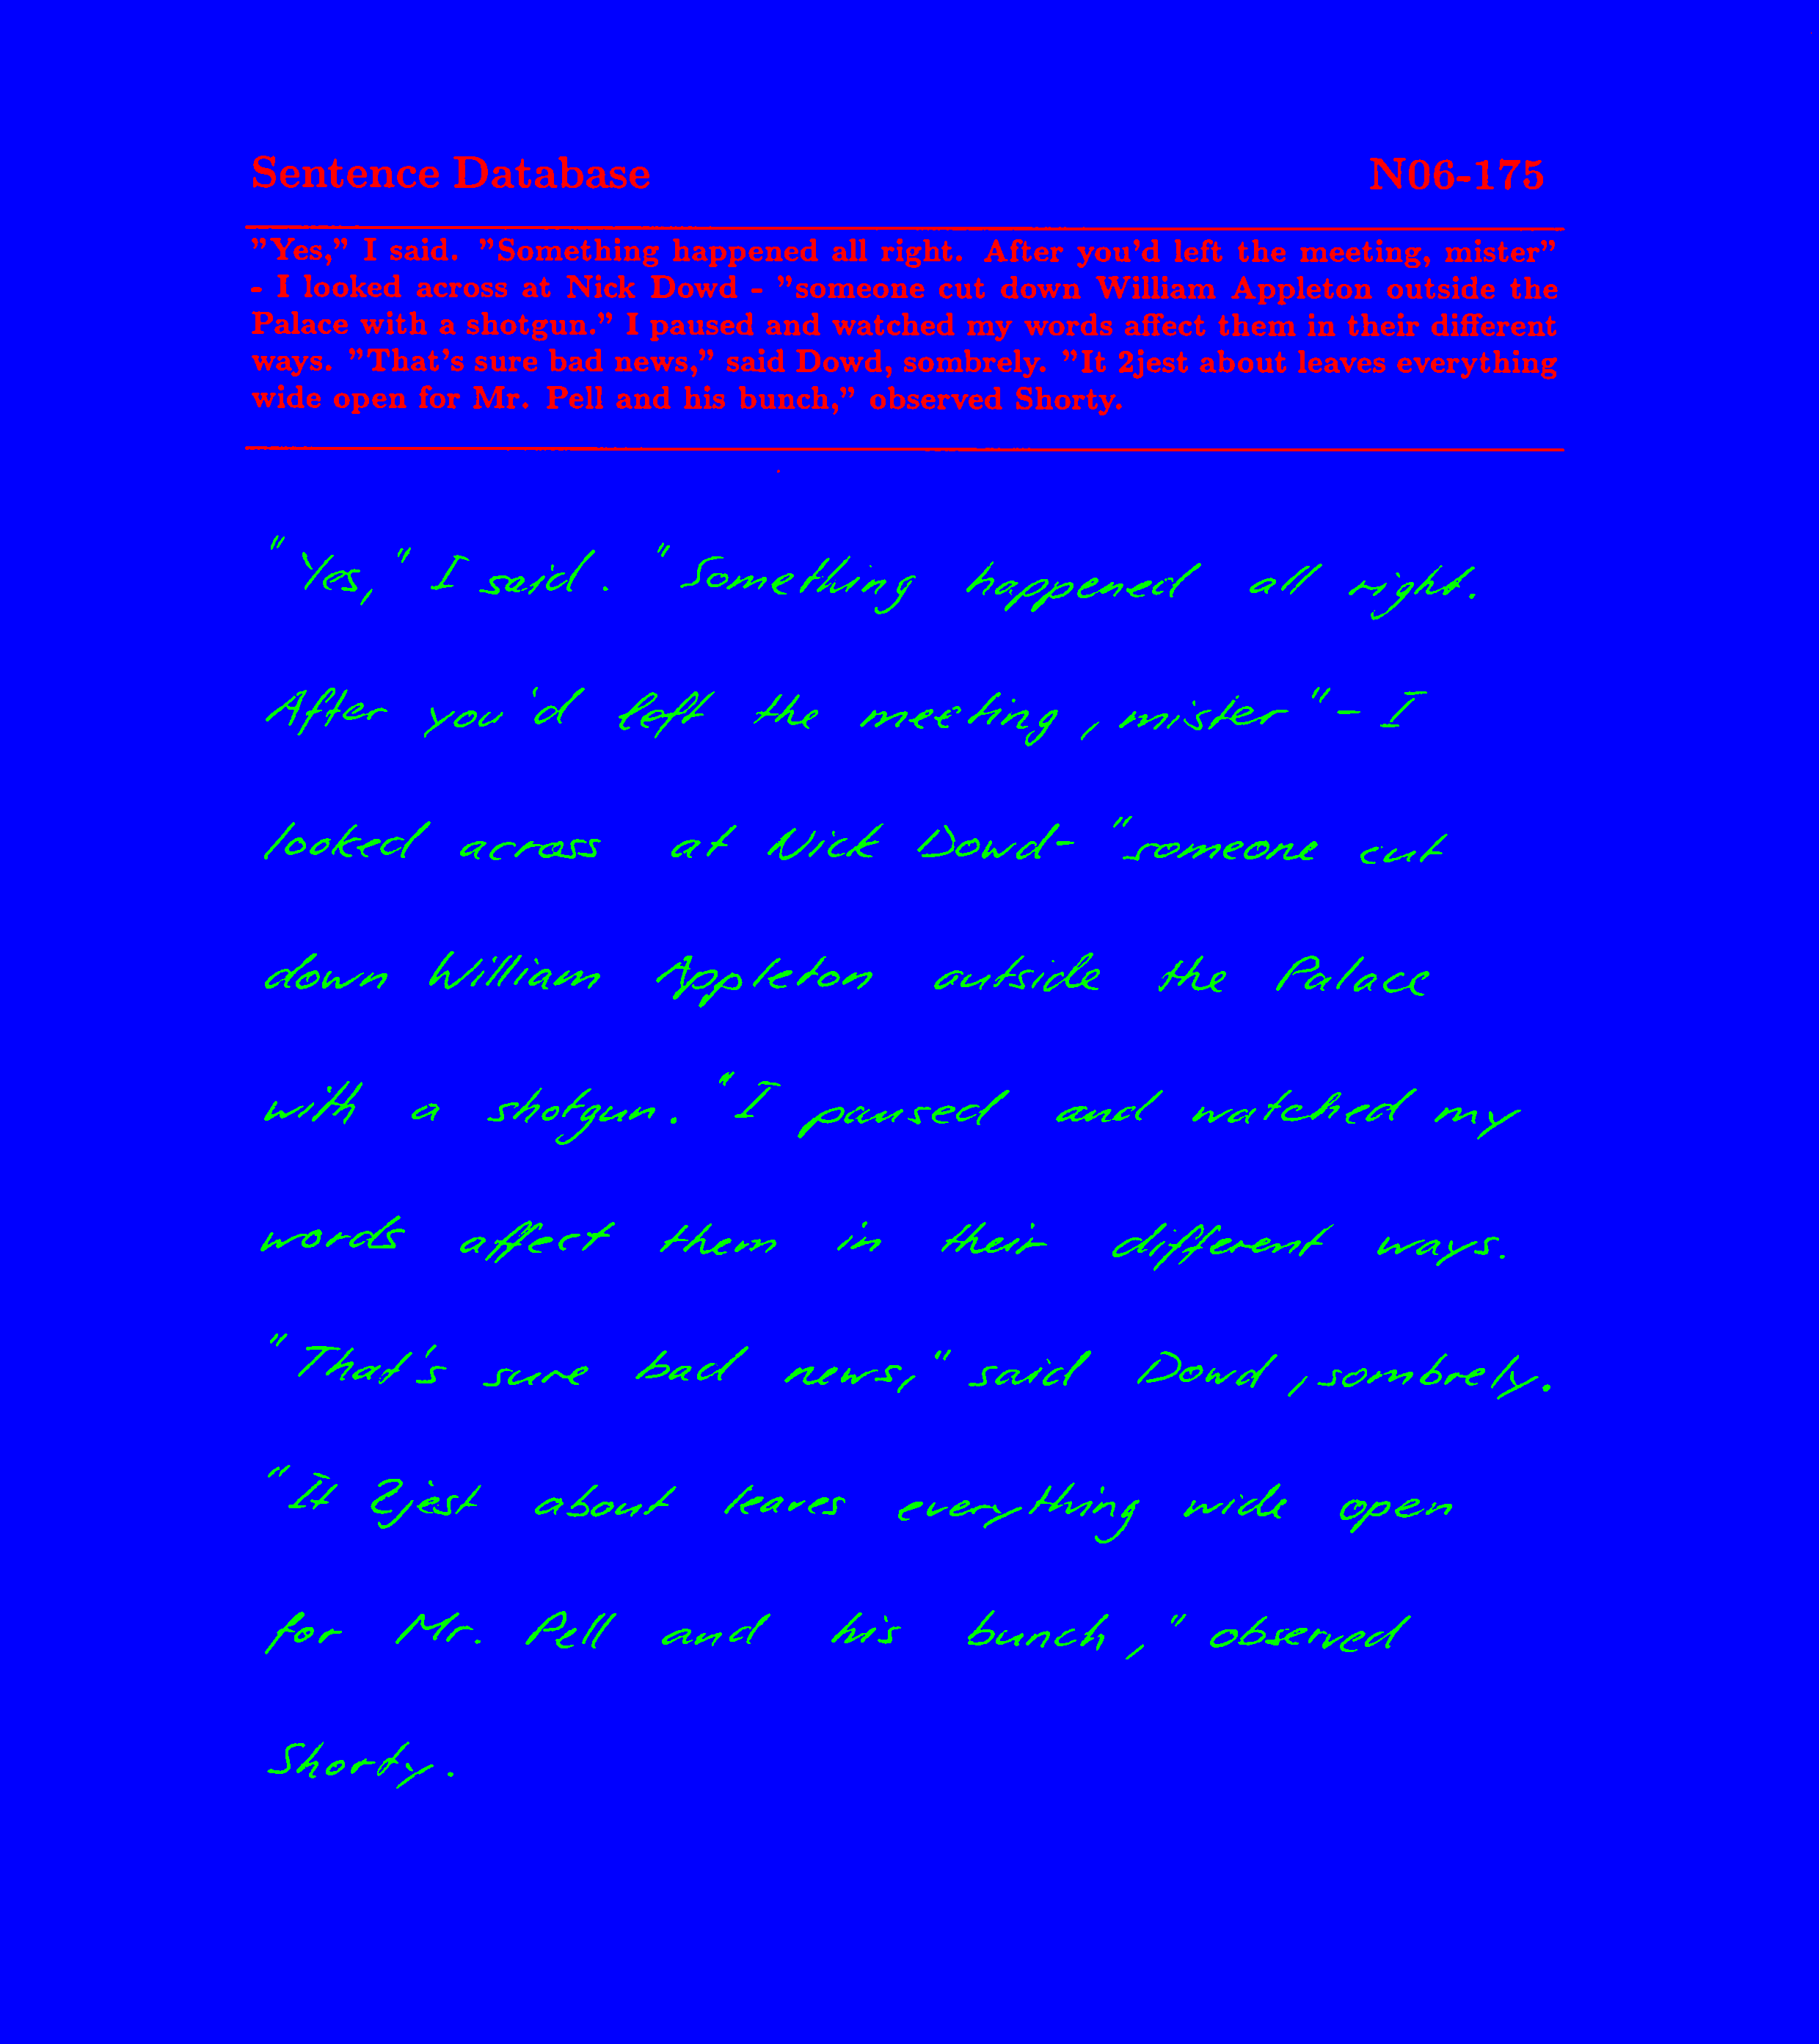 Sentence Database N06-175
"Yes," I said. "Something happened all right. After you'd left the meeting, mister"
- I looked across at Nick Dowd - "someone cut down William Appleton outside the
Palace with a shotgun." I paused and watched my words affect them in their different
ways. "That's sure bad news," said Dowd, sombrely. "It 2jest about leaves everything
wide open for Mr. Pell and his bunch," observed Shorty.
"Yes," I said. "Something happened all right.
After you'd left the meeting, mister" - I
looked across at Nick Dowd - "someone cut
down William Appleton outside the Palace
with a shotgun." I paused and watched my
words affect them in their different ways.
"That's sure bad news," said Dowd, sombrely.
"It 2jest about leaves everything wide open
for Mr. Pell and his bunch," observed
Shorty.